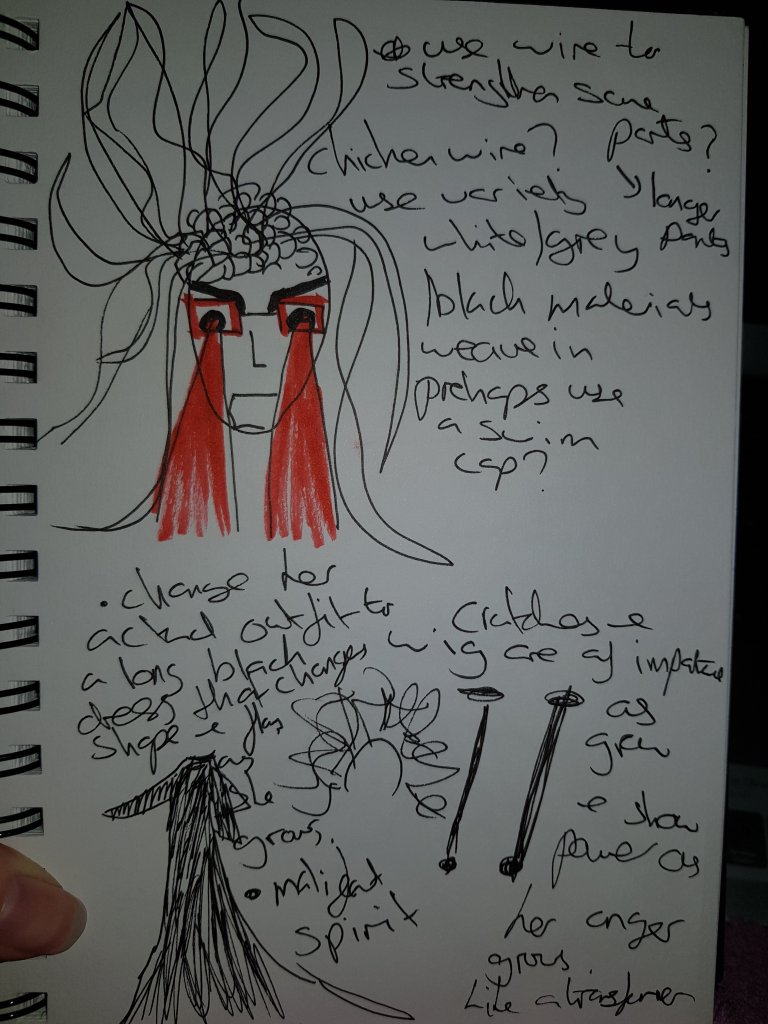 use wire to
strengthen some
parts?
chicken wire?
longer
parts
use variety
white/grey
/black materials
weave in
prehaps use
a swim
cap?
• change her
actual outfit to
a long black
dress that changes
shape &
as
she
grows.
• malignant
spirit
Crutches &
wig are of
as
grow
& show
power as
her anger
grows.
Like a transformer